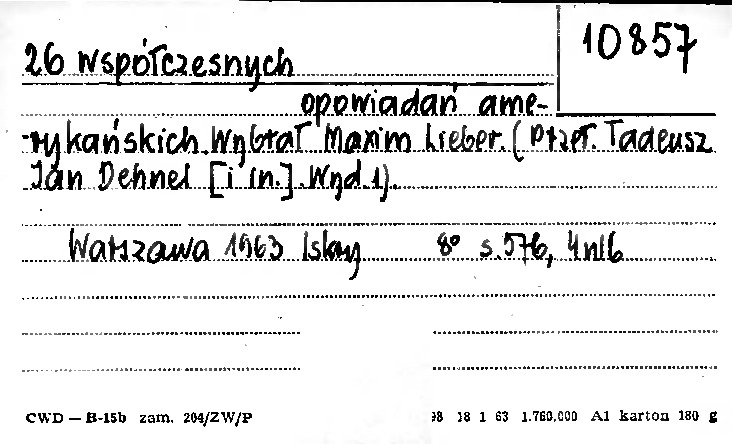 10857
26 współczesnych
opowiadań ame-
-rykańskich. Wybrał Maxim Lieber. (Przeł. Tadeusz
Jan Dehnel [i in.]. Wyd. 1).
Warszawa 1963 Iskry 8° s. 576, 4 nlb
CWD — B-15b zam. 204/ZW/P 18 1 63 1.760.000 A1 karton 180 g